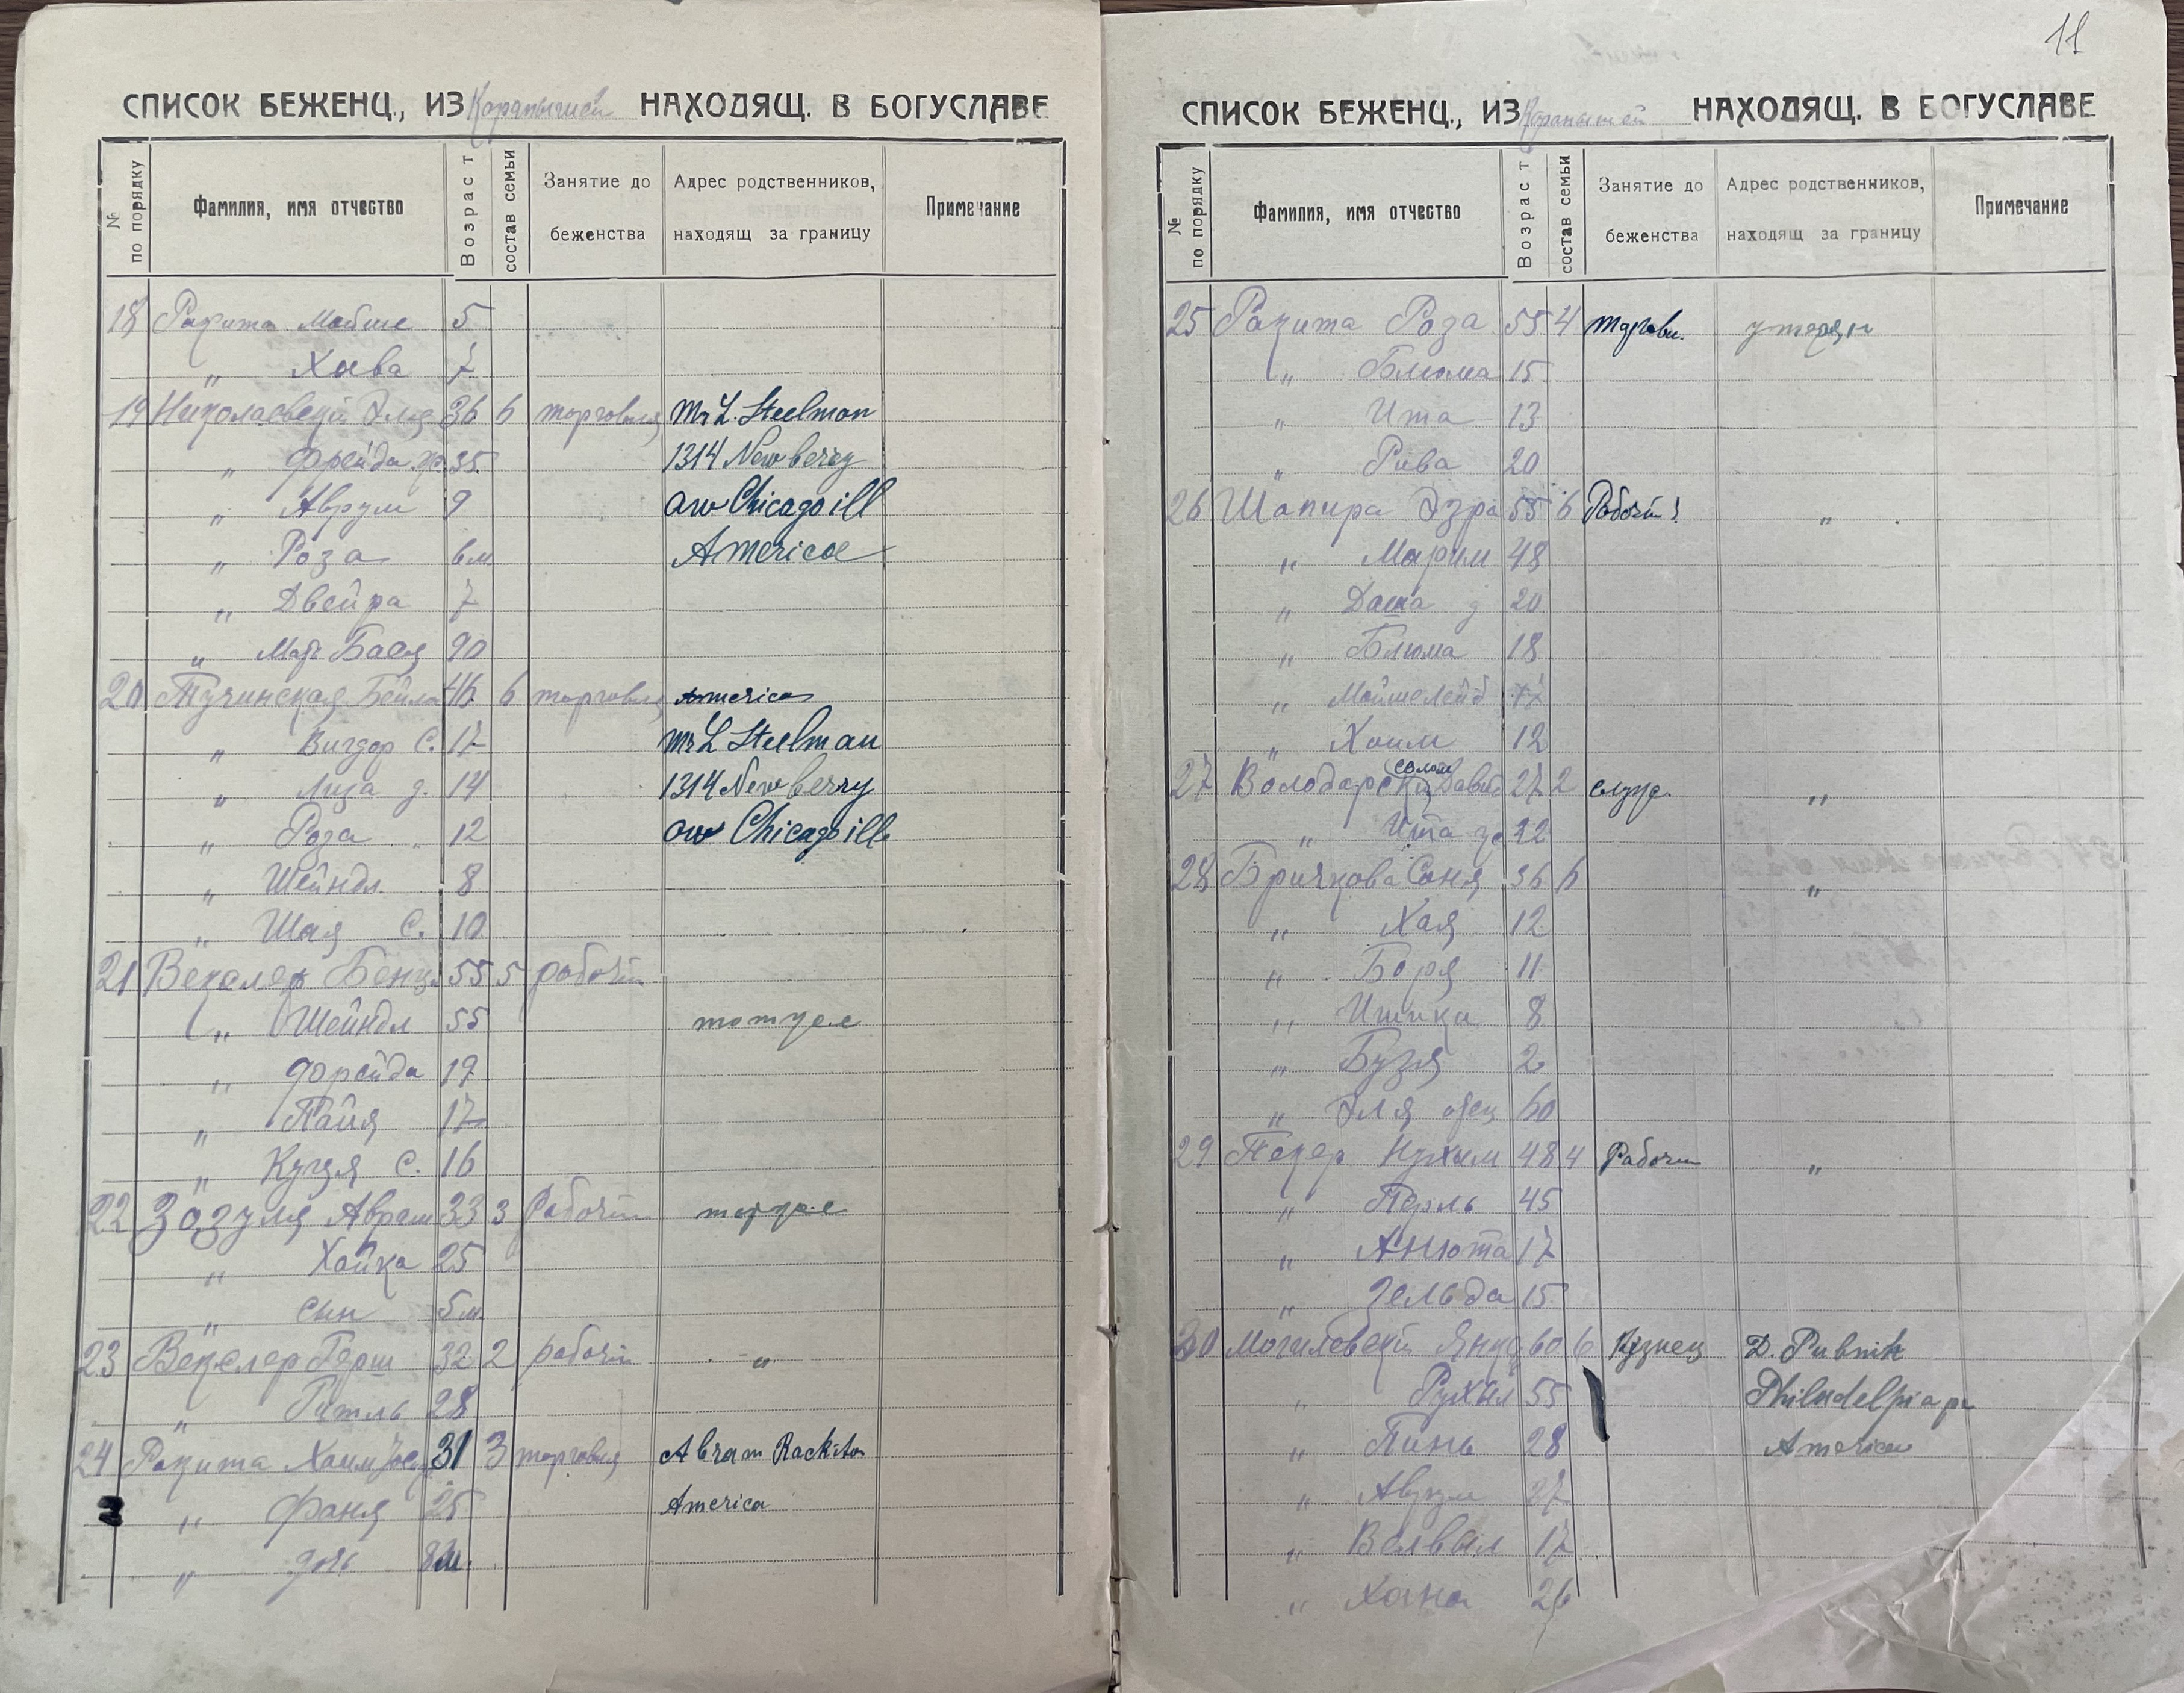 СПИСОК БЕЖЕНЦ., ИЗ НАХОДЯЩ. В БОГУСЛАВЕ
№ по порядку
Фамилия, имя отчество
Возраст
состав семьи
Занятие до беженства
Адрес родственников, находящ за границу
Примечание
18 Ракита Мойше 5
„ Хава 7
19 Николаевский Эля 36 6 торговля Mr L. Steelman
„ Фрейда ж. 35 1314 Newberry
„ Аврум 9 aw Chicago ill
„ Роза 6 м. America
„ Двейра 7
„ Мать Бася 90
20 Тучинская Бейла 46 6 торговля America
„ Вигдор С. 17 Mr L Steelman
„ Лиза д. 14 1314 Newberry
„ Роза „ 12 aw Chicago ill
„ Шейндл 8
„ Шая С. 10
21 Векслер Бенц. 55 5 рабочий
„ Шейндл 55
„ Фрейда 19
„ Пайя 17
„ С. 16
22 Зозуля Аврам 33 3 Рабочий
„ Хайка 25
„ сын 5 м.
23 Векслер Герш 32 2 рабочий „
„ Гитль 28
24 Ракита Хаим 31 3 торговля Abram Rackita
„ Фаня 25 America
„ дочь 8 м.
11
СПИСОК БЕЖЕНЦ., ИЗ НАХОДЯЩ. В БОГУСЛАВЕ
№ по порядку
Фамилия, имя отчество
Возраст
состав семьи
Занятие до беженства
Адрес родственников, находящ за границу
Примечание
25 Ракита Роза 55 4 торговл. утерян
„ Блюма 15
„ Ита 13
„ Рива 20
26 Шапира Эзра 55 6 Рабочий „
„ Марим 48
„ Даша д 20
„ Блюма 18
„ Мойшелейб 17
„ Хаим 12
27 Володарский Давид 27 2 служ. „
„ Ита 22
28 Бричкова Соня 36 6 „
„ Хая 12
„ Боря 11
„ 8
„ Бузя 2
„ Эля отец 60
29 Пекер Нухим 48 4 Рабочий „
„ Перль 45
„ Анюта 17
„ Зельда 15
30 Могилевский Янкл 60 6 Кузнец D. Pubnik
„ Рухыл 55 Philadelpia pa
„ Пинь 28 America
„ Аврум 27
„ Велвыл 17
„ Хана 26